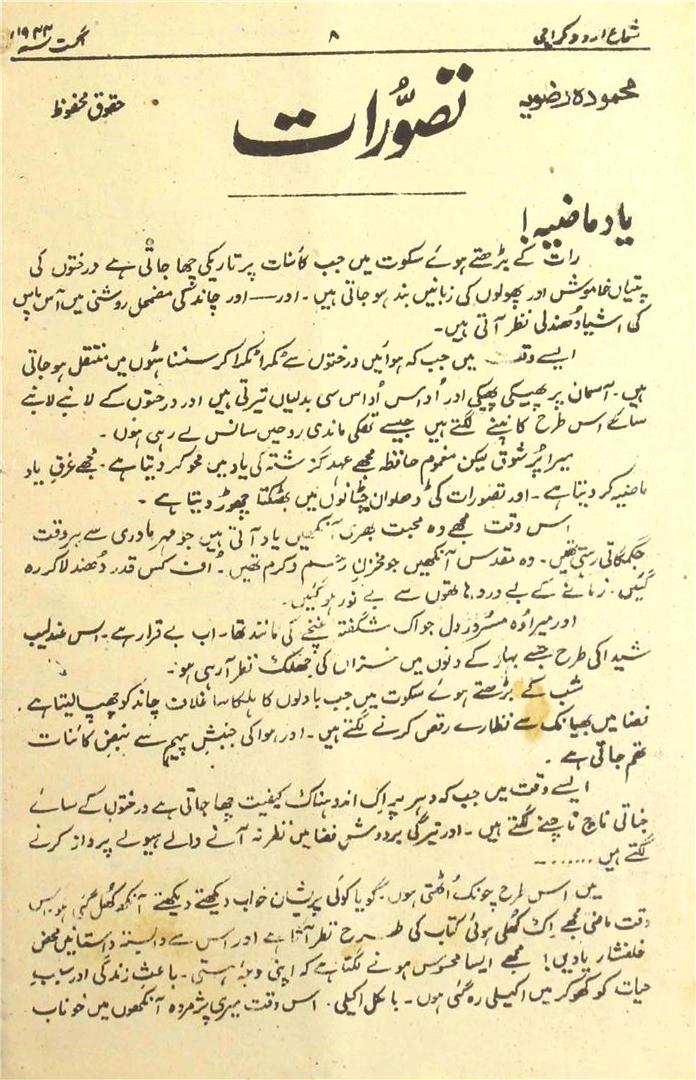 شعاع اردو کراچی ۸ اگست سنہ ۱۹۴۳ء
محمودہ رضویہ
تصوّرات
حقوق محفوظ
یاد ماضیہ!
رات کے بڑھتے ہوئے سکوت میں جب کائنات پر تاریکی چھا جاتی ہے درختوں کی
پتیاں خاموش اور پھولوں کی زبانیں بند ہو جاتی ہیں۔ اور — اور چاند کی مضمحل روشنی میں آس پاس
کی اشیاء دھندلی نظر آتی ہیں۔
ایسے وقت میں جب کہ ہوائیں درختوں سے ٹکرا ٹکرا کر سنسناہٹوں میں منتقل ہو جاتی
ہیں۔ آسمان پر پھیکی پھیکی اور اُداس اُداس سی بدلیاں تیرتی ہیں اور درختوں کے لانبے لانبے
سائے اس طرح کانپنے لگتے ہیں جیسے تھکی ماندی روحیں سانس لے رہی ہوں۔
میرا پُر شوق لیکن مغموم حافظہ مجھے عہد گزشتہ کی یاد میں محو کر دیتا ہے۔ مجھے غرقِ یاد
ماضیہ کر دیتا ہے۔ اور تصورات کی ڈھلوان چٹانوں میں بھٹکتا چھوڑ دیتا ہے۔
اس وقت مجھے وہ محبت بھری آنکھیں یاد آتی ہیں جو مہر مادری سے ہر وقت
جگمگاتی رہتی تھیں۔ وہ مقدس آنکھیں جو مخزنِ رحم و کرم تھیں۔ اُف کس قدر دُھندلا کر رہ
گئیں۔ زمانے کے بے درد ہاتھوں سے بے نور ہو گئیں۔
اور میرا وُہ مسرُور دل جو اک شگفتہ غنچے کی مانند تھا۔ اب بے قرار ہے۔ اس عندلیب
شیدا کی طرح جسے بہار کے دنوں میں خزاں کی جھلک نظر آ رہی ہو۔
شب کے بڑھتے ہوئے سکوت میں جب بادلوں کا ہلکا سا غلاف چاند کو چھپا لیتا ہے۔
فضا میں بھیانک سے نظارے رقص کرنے لگتے ہیں۔ اور ہوا کی جنبشِ پیہم سے نبضِ کائنات
تھم جاتی ہے۔
ایسے وقت میں جب کہ دہر پر اِک اندوہناک کیفیت چھا جاتی ہے درختوں کے سائے
جناتی ناچ ناچنے لگتے ہیں۔ اور تیرگی بردوش فضا میں نظر نہ آنے والے ہیولے پرواز کرنے
لگتے ہیں .......۔
میں اس طرح چونک اُٹھتی ہوں۔ گویا کوئی پریشان خواب دیکھتے دیکھتے آنکھ کُھل گئی ہو۔ اس
وقت ماضی مجھے اِک کُھلی ہوئی کتاب کی طرح نظر آتا ہے اور اس سے وابستہ داستانیں محض
خلفشار یادیں! مجھے ایسا محسوس ہونے لگتا ہے کہ اپنی وجۂ ہستی۔ باعث زندگی اور سببِ
حیات کو کھو کر میں اکیلی رہ گئی ہوں۔ بالکل اکیلی۔ اس وقت میری پژمردہ آنکھوں میں خوناب